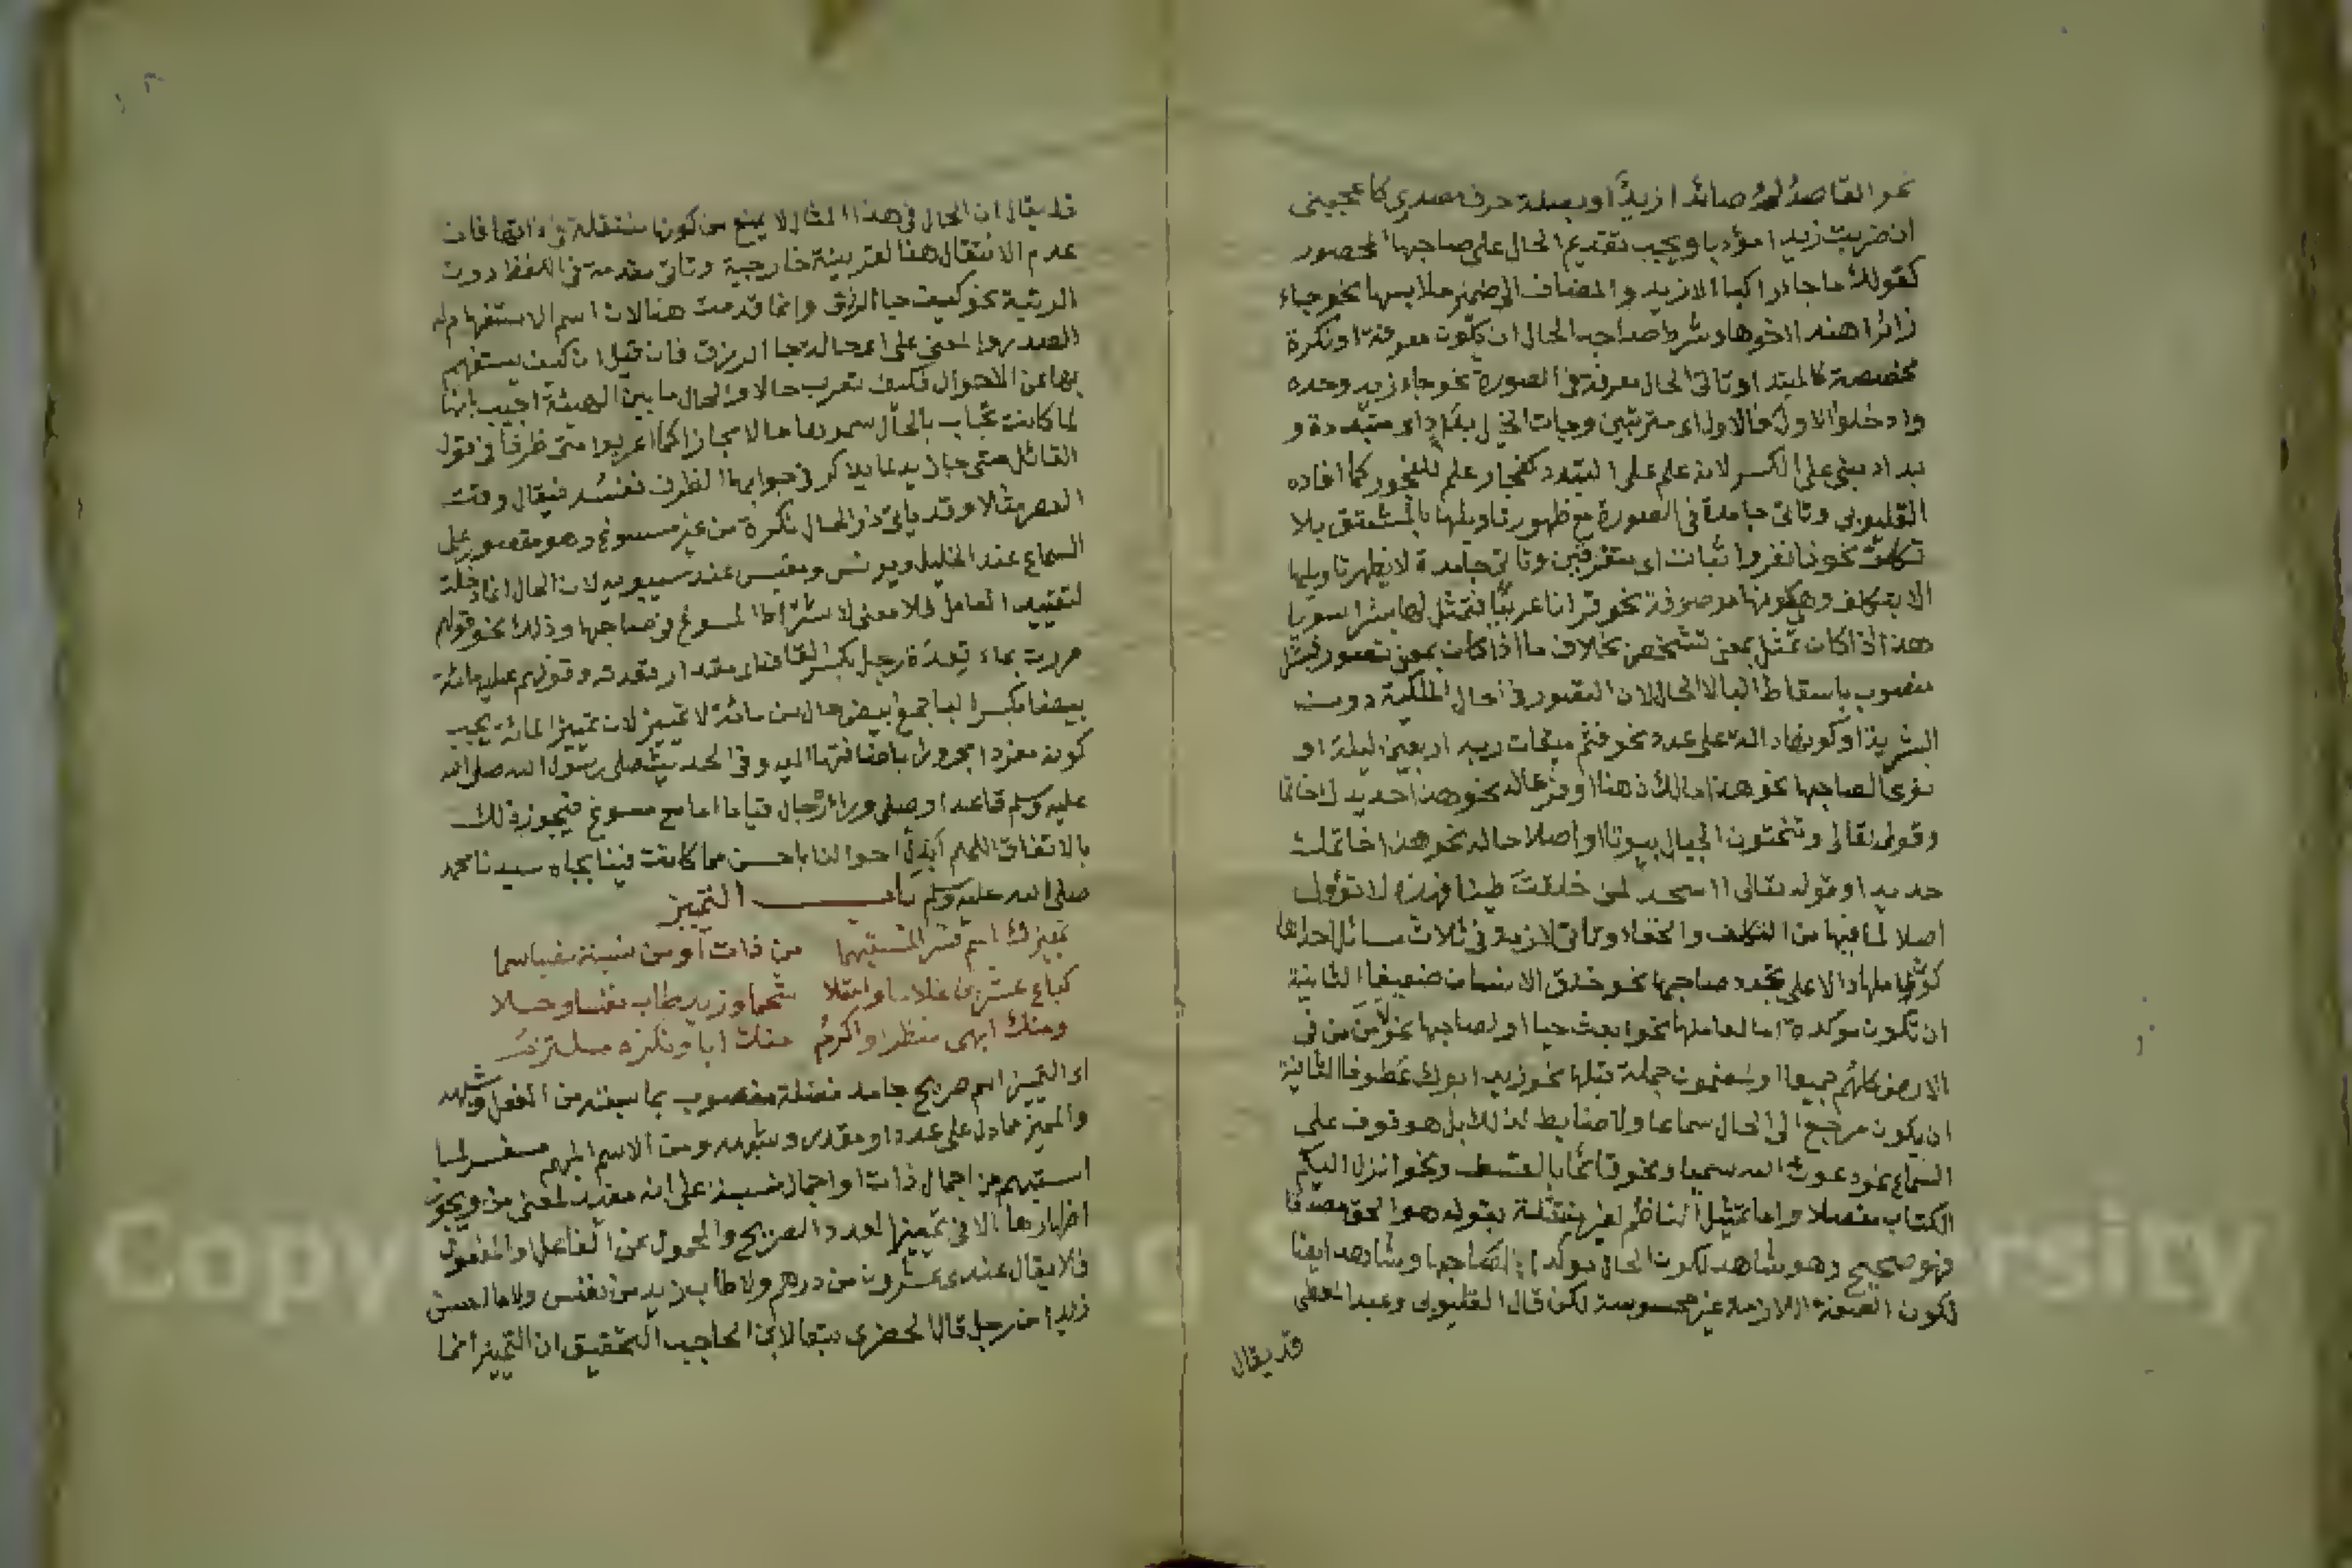 نحو القاصده صائدا زيدا وبصلة حرف مصدري كاعجبني
ان ضربت زيدا مؤدبا ويجب تقديم الحال على صاحبها المحصور
كقولك ما جا راكبا الا زيد والمضاف الى ضمير ملابسها نحو جاء
زائرا هندا اخوها وشرط صاحب الحال ان يكون معرفة او نكرة
مخصصة كالمبتدا وتاتي الحال معرفة في الصورة نحو جاء زيد وحده
وادخلوا الاول فالاول اي مترتبين وجات الخيل بداد اي متبددة و
بداد بني على الكسر لانه علم على التبدد كفجار علم للفجور كما افاده
القليوبي وتاتي جامدة في الصورة مع ظهور تاويلها بالمشتق بلا
تكلف نحو فانفروا ثبات اى متفرقين وتاتي جامدة لا يظهر تاويلها
الا بتكلف وهي كونها موصوفة نحو قرانا عربيا فتمثل لها بشرا سويا
هذا اذا كان تمثل بمعنى تشخص بخلاف ما اذا كان بمعنى تصور فبشرا
منصوب باسقاط البا لا الحال لان التصور في حال الملكية دون
البشرية او كونها دالة على عدد نحو فتم ميقات ربه اربعين ليلة او
نوعا لصاحبها نحو هذا مالك ذهبا او فرعا له نحو هذا حديدك خاتما
وقوله تعالى وتنحتون الجبال بيوتا او اصلا حاله نحو هذا خاتمك
حديدا وقوله تعالى ااسجد لمن خلقت طينا فهذه لا تؤول
اصلا لما فيها من التكلف والخفاء وتاتي لازمة في ثلاث مسائل احداها
كون عاملها دالا على تجدد صاحبها نحو خلق الانسان ضعيفا الثانية
ان تكون موكدة اما لعاملها نحو ابعث حيا او لصاحبها نحو لآمن من في
الارض كلهم جميعا او لمضمون جملة قبلها نحو زيد ابوك عطوفا الثالثة
ان يكون مرجع الى الحال سماعا ولا ضابط لذلك بل هو موقوف على
السماع نحو دعوت الله سميعا ونحو قائما بالقسط ونحو انزل اليكم
الكتاب مفصلا واما تمثيل الناظم لغير منتقلة بقوله هو الحق مصدقا
فهو صحيح وهو شاهد لكون الحال موكدا لصاحبها وشاهد ايضا
لكون الصفة اللازمة غير محسوسة لكن قال القليوبي وعبد المعطي
قد يقال
قد يقال ان الحال في هذا المثال لا يمنع من كونها منتقلة في ذاتها فان
عدم الانتقال هنا لقرينة خارجية وتاتي مقدمة في اللفظ دون
الرتبة نحو كيف جا الرزق وانما قدمت هنا لان اسم الاستفهام له
الصدر والمعنى على اي حالة جا الرزق فان قيل ان كيف يستفهم
بها عن الاحوال فكيف تعرب حالا والحال ما يبين الهيئة اجيب بانها
لما كانت تجاب بالحال سموها حالا مجازا كما اعربوا متى ظرفا في قول
القائل متى جا زيد لما يذكر في جوابها الظرف نفسه فيقال وقت
العصر مثلا وقد ياتي ذو الحال نكرة من غير مسوغ وهو مقصور على
السماع عند الخليل ويونس ومقيس عند سيبويه لان الحال انما دخلت
لتقييد العامل فلا معنى لاشتراط المسوغ في صاحبها وذلك نحو قولهم
مررت بماء قعدة رجل بكسر القاف اي مقدار قعدته وقولهم عليه مائة
بيضا بكسر البا جمع ابيض حال من مائة لا تمييز لان تمييز المائة يجب
كونه مفردا مجرورا باضافتها اليه وفي الحديث صلى رسول الله صلى الله
عليه وسلم قاعدا وصلى وراه رجال قياما اما مع مسوغ فيجوز ذلك
بالاتفاق اللهم ابدل احوالنا باحسن مما كانت فينا بجاه سيدنا محمد
صلى الله عليه وسلم باب التمييز
تمييزك اسم فسر المستبهما من ذات او من نسبة نفيا سما
كباع عشرين غلاما وامتلا شحما وزيد طاب نفسا وحلا
ومنك ابهى منظرا واكرم منك ابا ونكره ملتزم
اى التمييز اسم صريح جامد فضلة منصوب بما سبقه من الفعل وشبهه
والمميز ما دل على عدد او مقدر وشبهه ومن الاسم المبهم مفسر لما
استبهم من اجمال ذات او اجمال نسبة على انه مقدر لمعنى من ويجوز
اظهارها الا في تمييزها لعدد الصريح والمحول عن الفاعل او المفعول
فلا يقال عندى عشرون من درهم ولا طاب زيد من نفس ولا ما احسن
زيدا من رجل قال الحضرى تبعا لابن الحاجب التحقيق ان التمييز انما